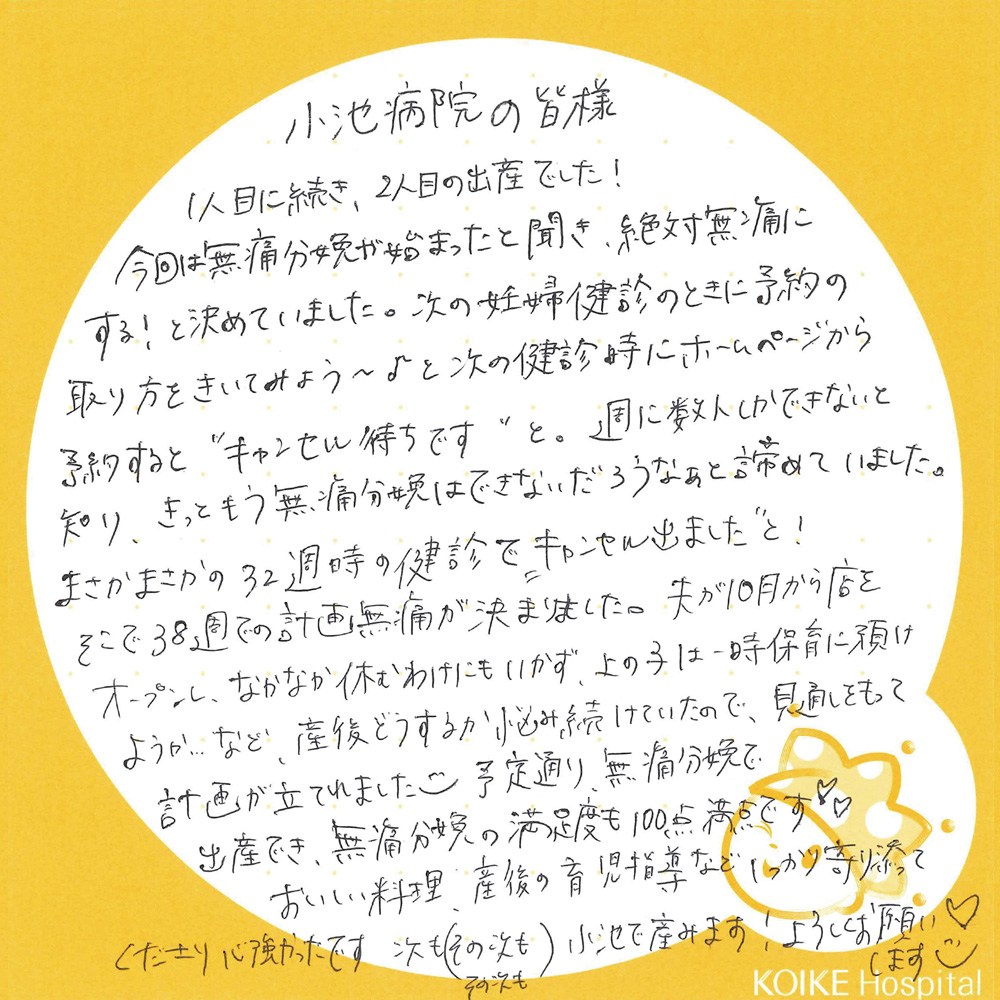 小池病院の皆様
1人目に続き、2人目の出産でした!
今回は無痛分娩が始まったと聞き、絶対無痛に
する!と決めていました。次の妊婦健診のときに予約の
取り方をきいてみよう〜♪と次の健診時にホームページから
予約すると"キャンセル待ちです"と。週に数人しかできないと
知り、きっともう無痛分娩はできないだろうなぁと諦めていました。
まさかまさかの32週時の健診で"キャンセル出ました"と!
そこで38週での計画無痛が決まりました。夫が10月から店を
オープンし、なかなか休むわけにもいかず、上の子は一時保育に預け
ようか…など、産後どうするか悩み続けていたので、見通しをもって
計画が立てれました 予定通り、無痛分娩で
出産でき、無痛分娩の満足度も100点満点です♡♡
おいしい料理、産後の育児指導などしっかり寄り添って
くださり心強かったです 次も(その次も)小池で産みます!よろしくお願い♡
その次も
します
KOIKE Hospital